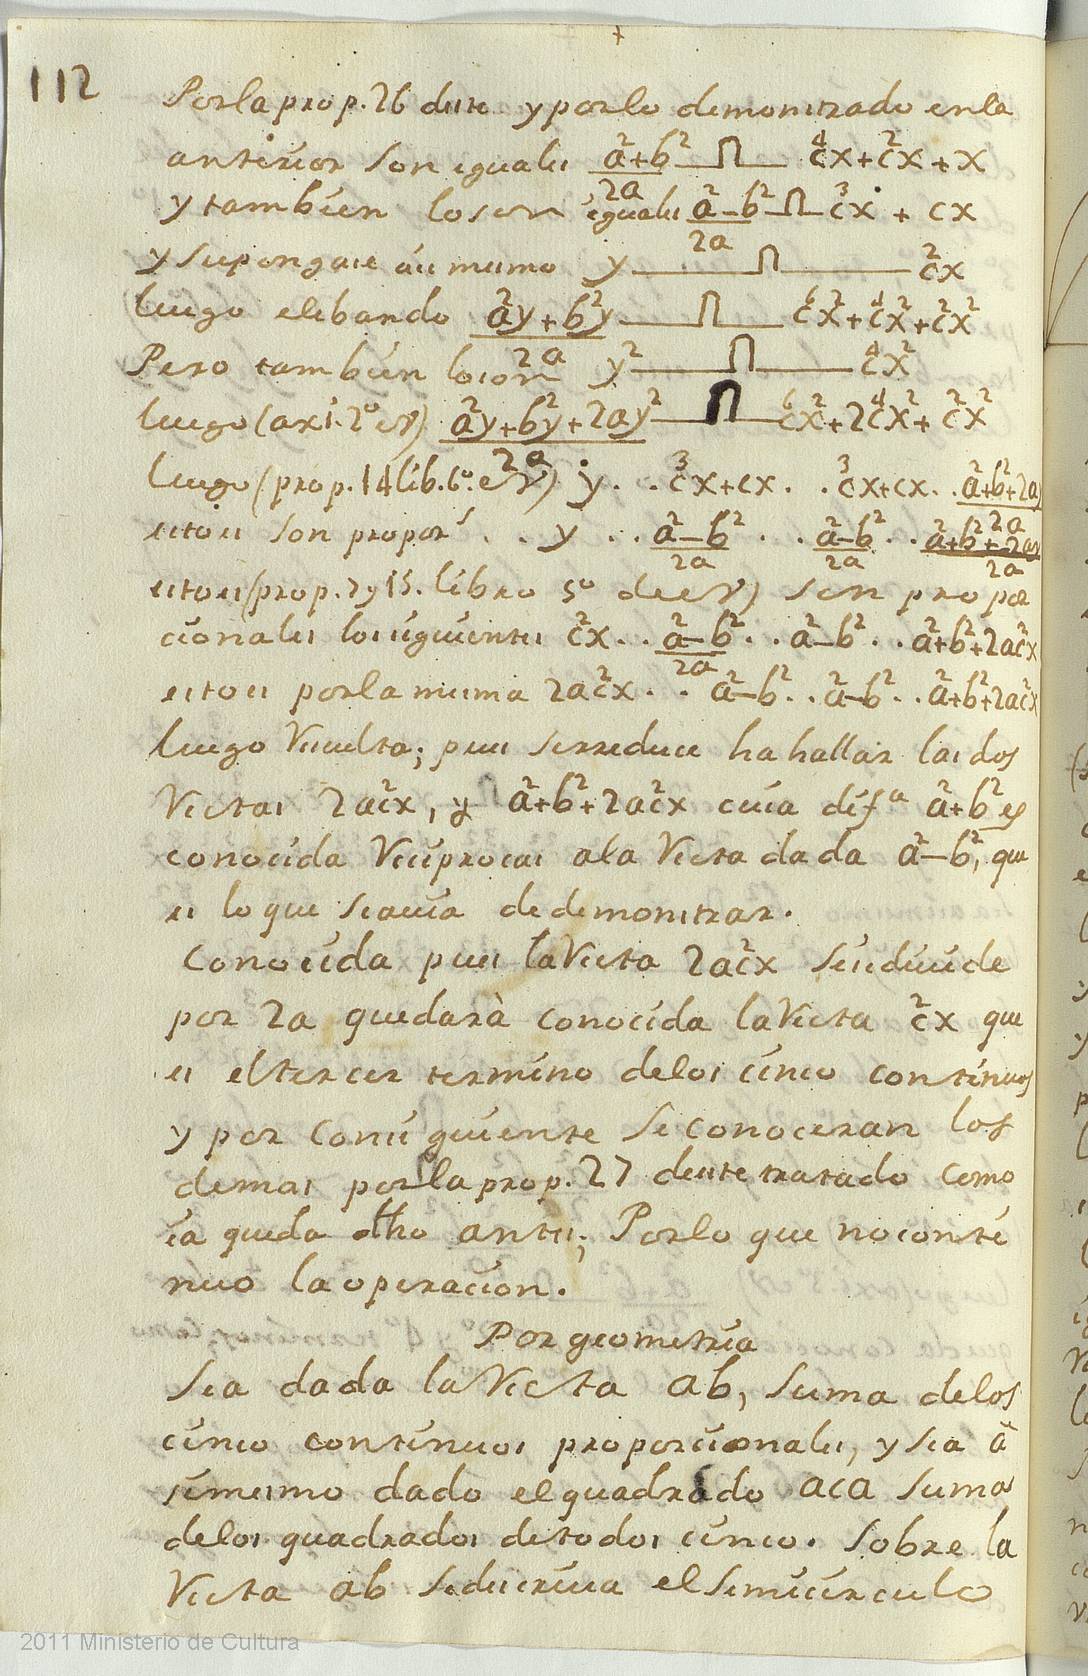 112
Por la prop. 26 deste y por lo demonstrado en la
anterior son iguales (a²+b²)/2a ⊓ c⁴x + c²x + x
y tambien lo son iguales (a²–b²)/2a ⊓ c³x + cx
y supongase assi mismo y ⊓ c²x
luego elebando (a²y + b²y)/2a ⊓ c⁶x² + c⁴x² + c²x²
Pero tambien lo son y² ⊓ c⁴x²
luego (axi. 2º) (a²y + b²y + 2ay²)/2a ⊓ c⁶x² + 2c⁴x² + c²x²
luego (prop. 14 lib. 6º) y . . c³x + cx . . c³x + cx . . (a²+b²+2ay)/2a
esto es son propor . . y . . (a²–b²)/2a . . (a²–b²)/2a . . (a²+b²+2ay)/2a
esto es (prop. 7 y 15. libro 5º de) son propor
cionales los siguientes c²x . . (a²–b²)/2a . . a²–b² . . a²+b²+2ac²x
esto es por la misma 2ac²x . . a²–b² . . a²–b² . . a²+b²+2ac²x
luego Resuelta; pues se rreduce ha hallar las dos
Rectas 2ac²x, y a²+b²+2ac²x cuia difª a²+b² es
conocida Reciprocas a la Recta dada a²–b², que
es lo que se avia de demonstrar.
Conocida pues la Recta 2ac²x se divide
por 2a quedarà conocida la Recta c²x que
es el tercer termino de los cinco continuos
y por consiguiente se conoceran los
demas por la prop. 27 deste tratado como
ia queda dho antes; Por lo que no conti
nuo la operacion.
Por geometria
Sea dada la Recta ab, suma de los
cinco continuos proporcionales, y sea a
simesmo dado el quadrado aca suma
de los quadrados de todos cinco. Sobre la
Recta ab se descriva el semicirculo
2011 Ministerio de Cultura